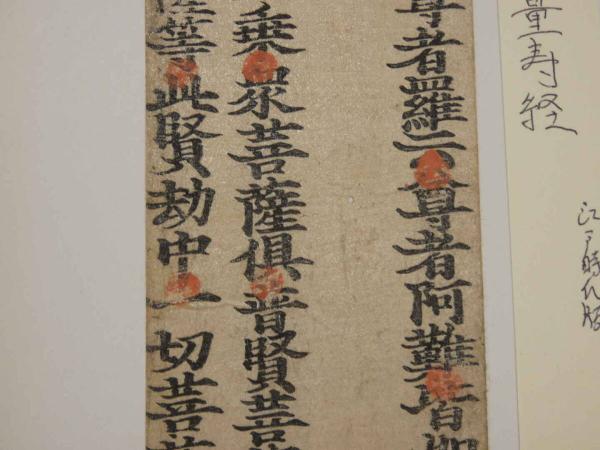 量寿経
江戸時代版
尊者羅云尊者阿難皆
乗衆菩薩倶普賢菩
等此賢劫中一切菩